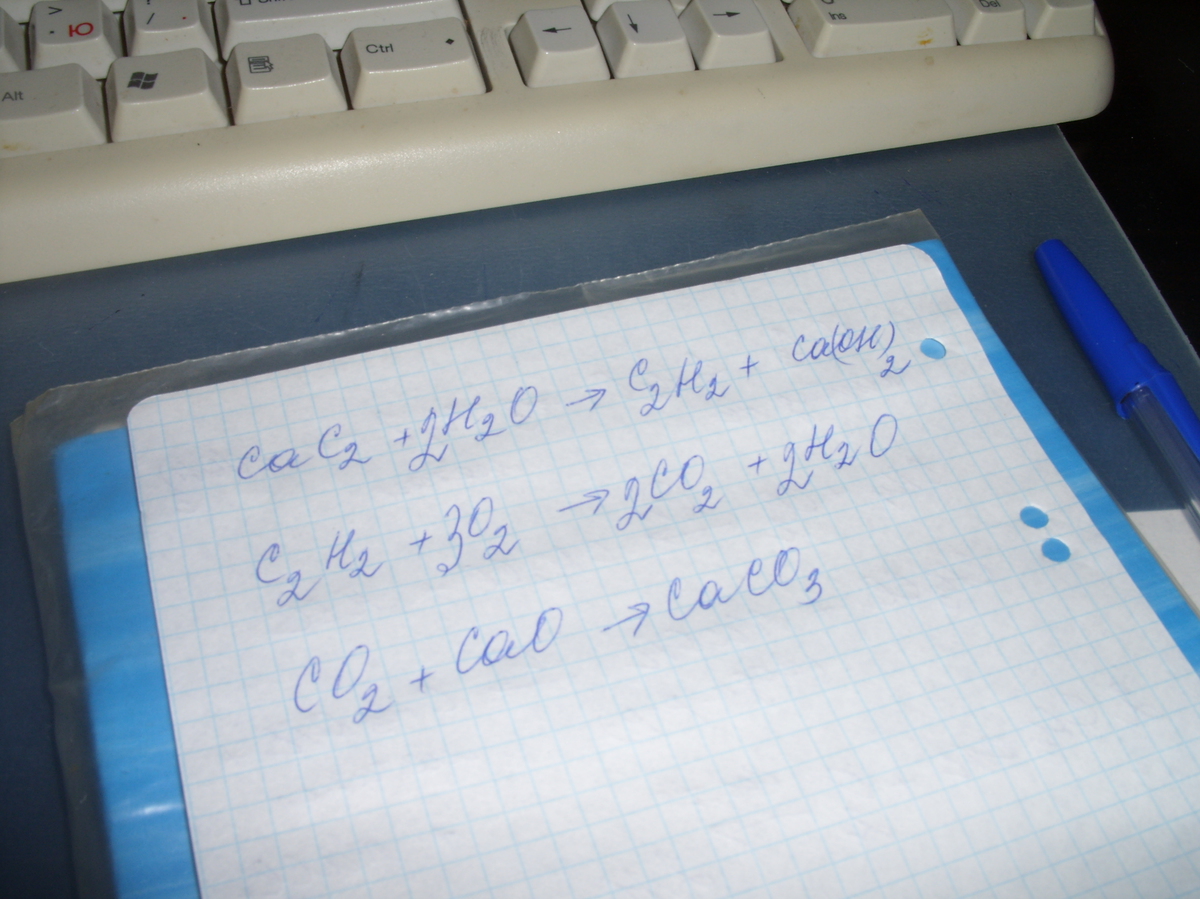 > . Ю
! / .
Ins
Del
Alt
Ctrl
CaC₂ + 2H₂O → C₂H₂ + Ca(OH)₂
C₂H₂ + 3O₂ → 2CO₂ + 2H₂O
CO₂ + CaO → CaCO₃